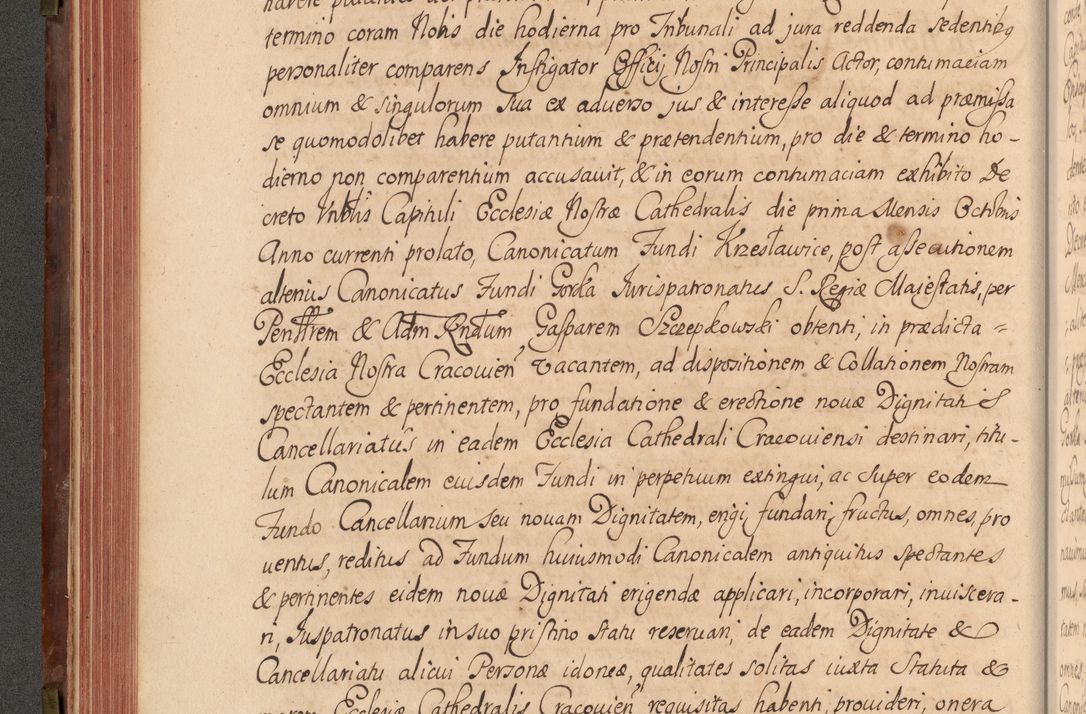 termino coram Nobis die hodierna pro Tribunali ad jura reddenda sedentibq
personaliter comparens Instigator Officij Nostri Principalis Actor, contumaciam
omnium & singulorum sua ex adverso jus & interesse aliquod ad præmissa
se quomodolibet habere putantium & prætendentium, pro die & termino ho-
dierno non comparentium accusavit, & in eorum contumaciam exhibito De
creto Vnblis Capituli Ecclesiæ Nostræ Cathedralis die prima Mensis Octobris
Anno currenti prolato, Canonicatum Fundi Krzesławice, post assecutionem
alterius Canonicatus Fundi Gorka Jurispatronatus S. Regiæ Maiestatis, per
Perillrem & Adm Rndum Gasparem Szczepkowski obtenti, in prædicta =
Ecclesia Nostra Cracovien vacantem, ad dispositionem & Collationem Nostram
spectantem & pertinentem, pro fundatione & erectione novæ Dignitatis
Cancellariatus in eadem Ecclesia Cathedrali Cracoviensi destinari, titu-
lum Canonicalem eiusdem Fundi in perpetuum extingui, ac super eodem
Fundo Cancellarium seu novam Dignitatem, erigi, fundari, fructus, omnes, pro
ventus, reditus ad Fundum huiusmodi Canonicalem antiquitus spectantes
& pertinentes eidem novæ Dignitati erigendæ applicari, incorporari, inviscera-
ri, Juspatronatus in suo pristino statu reservari, de eadem Dignitate &
Cancellariatu alicui Personæ idoneæ, qualitates solitas iuxta Statuta &
Ecclesiæ Cathedralis Cracovien requisitas habenti, provideri, onera